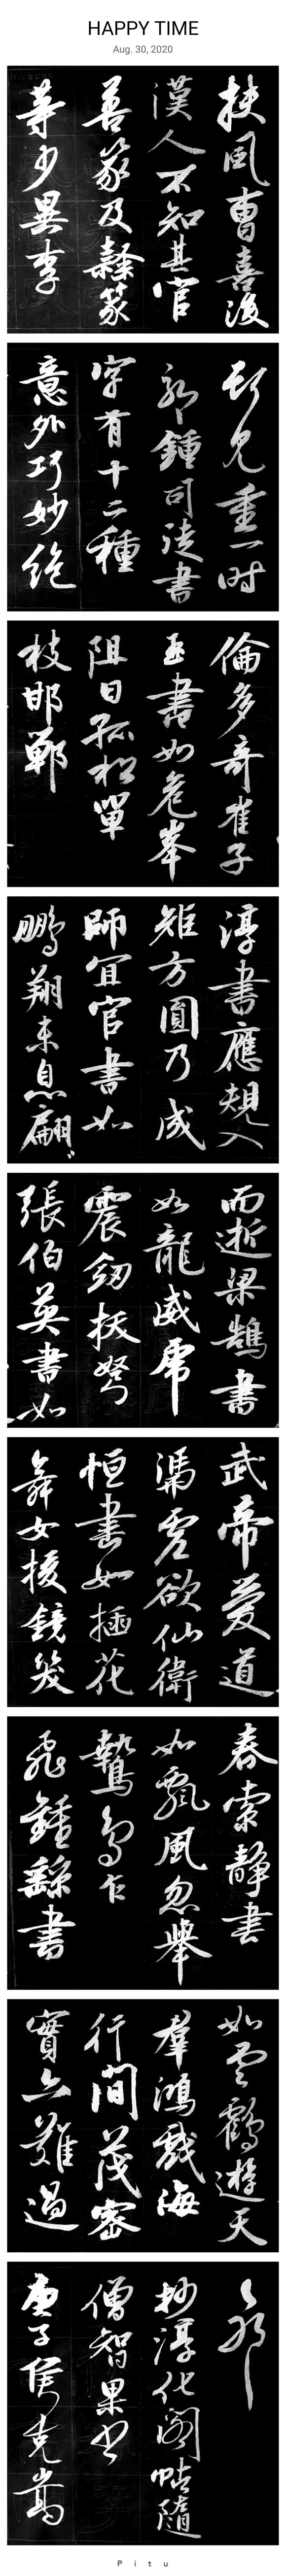 HAPPY TIME
Aug. 30, 2020
扶風曹喜後
漢人不知其官
善篆及隸篆
等少異李
斯見重一时
鍾司徒書
字有十二種
意外巧妙絕
倫多奇崔子
玉書如危峯
阻日孤松單
枝邯鄲
淳書應規入
矩方圓乃成
師宜官書如
鵬翔未息翩〻
而逝梁鵠書
如龍威虎
震劒拔弩
張伯英書如
武帝愛道
馮虛欲仙衛
恒書如插花
舞女援鏡笑
春索靜書
如飄風忽舉
鷙鳥乍
飛鍾繇書
如雲鶴遊天
羣鴻戲海
行間茂密
實亦難過
耶
抄淳化閣帖隨
僧智果書
庚子侯克嵩
Pitu